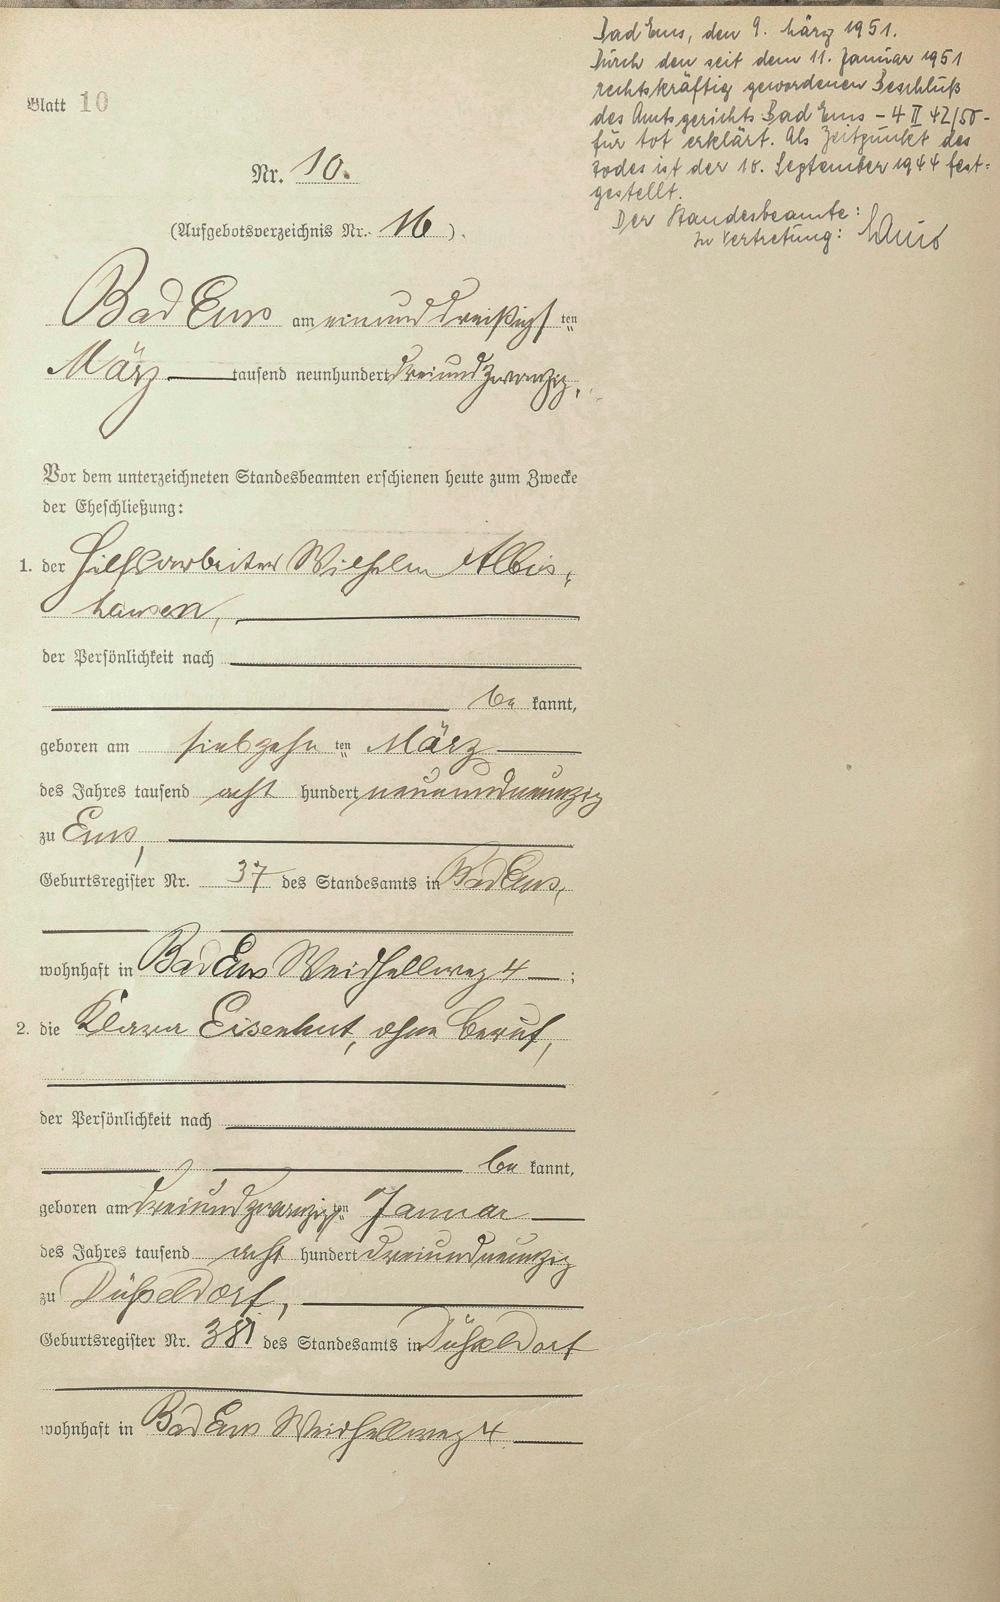 Blatt 10
Nr. 10.
(Aufgebotsverzeichnis Nr. 16).
Bad Ems am einunddreißigsten
März tausend neunhundert dreiundzwanzig.
Vor dem unterzeichneten Standesbeamten erschienen heute zum Zwecke
der Eheschließung:
1. der Hilfsarbeiter Wilhelm Albis-
hausen,
der Persönlichkeit nach
be kannt,
geboren am siebzehn ten März
des Jahres tausend acht hundert neunundneunzig
zu Ems,
Geburtsregister Nr. 37 des Standesamts in Bad Ems,
wohnhaft in Bad Ems Weidhellweg 4 ;
2. die Klara Eisenhut, ohne Beruf,
der Persönlichkeit nach
be kannt,
geboren am dreiundzwanzigsten Januar
des Jahres tausend acht hundert dreiundneunzig
zu Düsseldorf,
Geburtsregister Nr. 381 des Standesamts in Düsseldorf
wohnhaft in Bad Ems Weidhellweg 4
Bad Ems, den 9. März 1951.
Durch den seit dem 11. Januar 1951
rechtskräftig gewordenen Beschluß
des Amtsgerichts Bad Ems – 4 II 42/50 –
für tot erklärt. Als Zeitpunkt des
Todes ist der 18. September 1944 fest-
gestellt.
Der Standesbeamte:
In Vertretung: